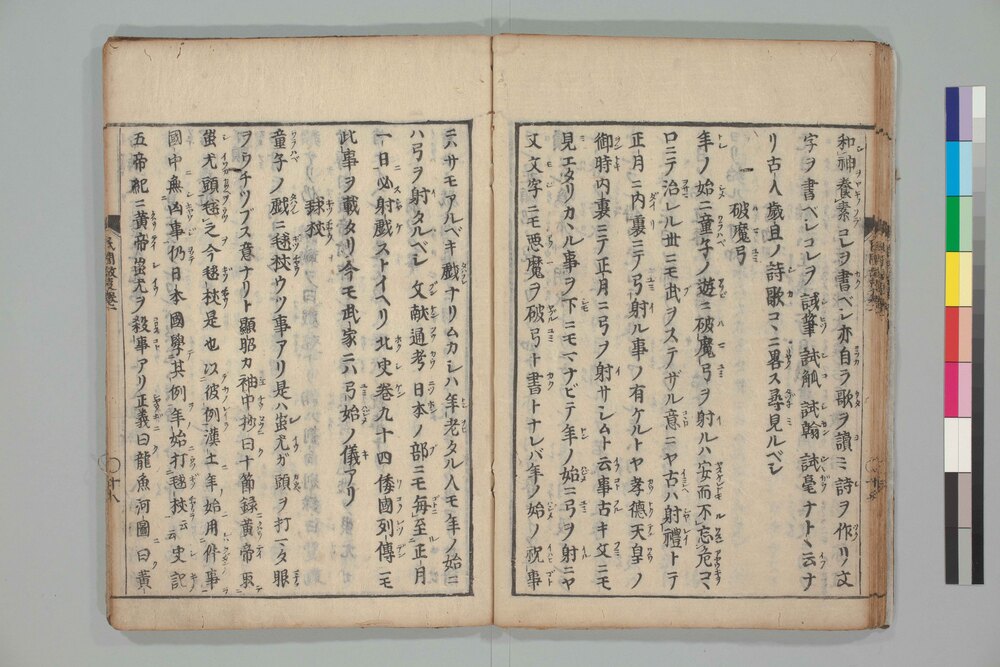 和神養素コレヲ書ベシ亦自ラ歌ヲ讀ミ詩ヲ作リ文
字ヲ書ベシコレヲ試筆試觚試翰試毫ナトヽ云ナ
リ古人歳旦ノ詩歌コヽニ畧ス尋見ルベシ
破魔弓
年ノ始ニ童子ノ遊ニ破魔弓ヲ射ルハ安而不忘危コヽ
ロニテ治レル世ニモ武ヲステザル意ニヤ古ハ射禮トテ
正月ニ内裏ニテ弓射ル事ノ有ケルトヤ孝德天皇ノ
御時内裏ニテ正月ニ弓ヲ射サシムト云事古キ文ニモ
見エタリカヽル事ヲ下ニモマナビテ年ノ始ニ弓ヲ射ニヤ
又文字ニモ悪魔ヲ破弓ト書トナレバ年ノ始ノ祝事
ニハサモアルベキ戲ナリムカシハ年老タル人モ年ノ始ニ
ハ弓ヲ射タルベシ文献通考日本ノ部ニモ毎至正月
一日必射戲ストイヘリ北史卷九十四倭國列傳ニモ
此事ヲ載タリ今モ武家ニハ弓始ノ儀アリ
毬杖
童子ノ戲ニ毬杖ウツ事アリ是ハ蚩尤ガ頭ヲ打マタ眼
ヲウチツブス意ナリト顯昭カ袖中抄曰十節録黄帝
蚩尤頭毬之今毬杖是也以彼例漢土年始用件事
國中無凶事仍日本國學其例年始打毬杖云云史記
五帝紀ニ黄帝蚩尤ヲ殺事アリ正義曰龍魚河圖曰黄